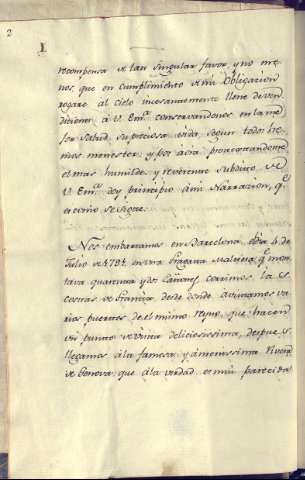 2
I
recompensa de tan singular favor, y no me-
nos, que en cumplimiento de mi obligacion
rogare al cielo incesantemente llene de ven-
diciones à V. Em.ª conservandonos en la me-
jor salud, su preciosa vida, segun todos he-
mos menester, y por aora protextandome
el mas humilde, y reverente subdito de
V. Em.ª doy principio à mi Narrazion, q.e
es como se sigue.
Nos embarcamos en Barcelona, dia 4 de
Julio de 1784. en una Fragata Maltesa q.e mon-
tava quarenta y dos Cañones, corrimos las
costas de Francia desde donde avistamos va-
rios puertos de el mismo Reyno, que hacen
un punto de vista deliciosissimo, despues
llegamos à la famosa, y amenissima Rivera
de Genova, que à la verdad es mui parecida